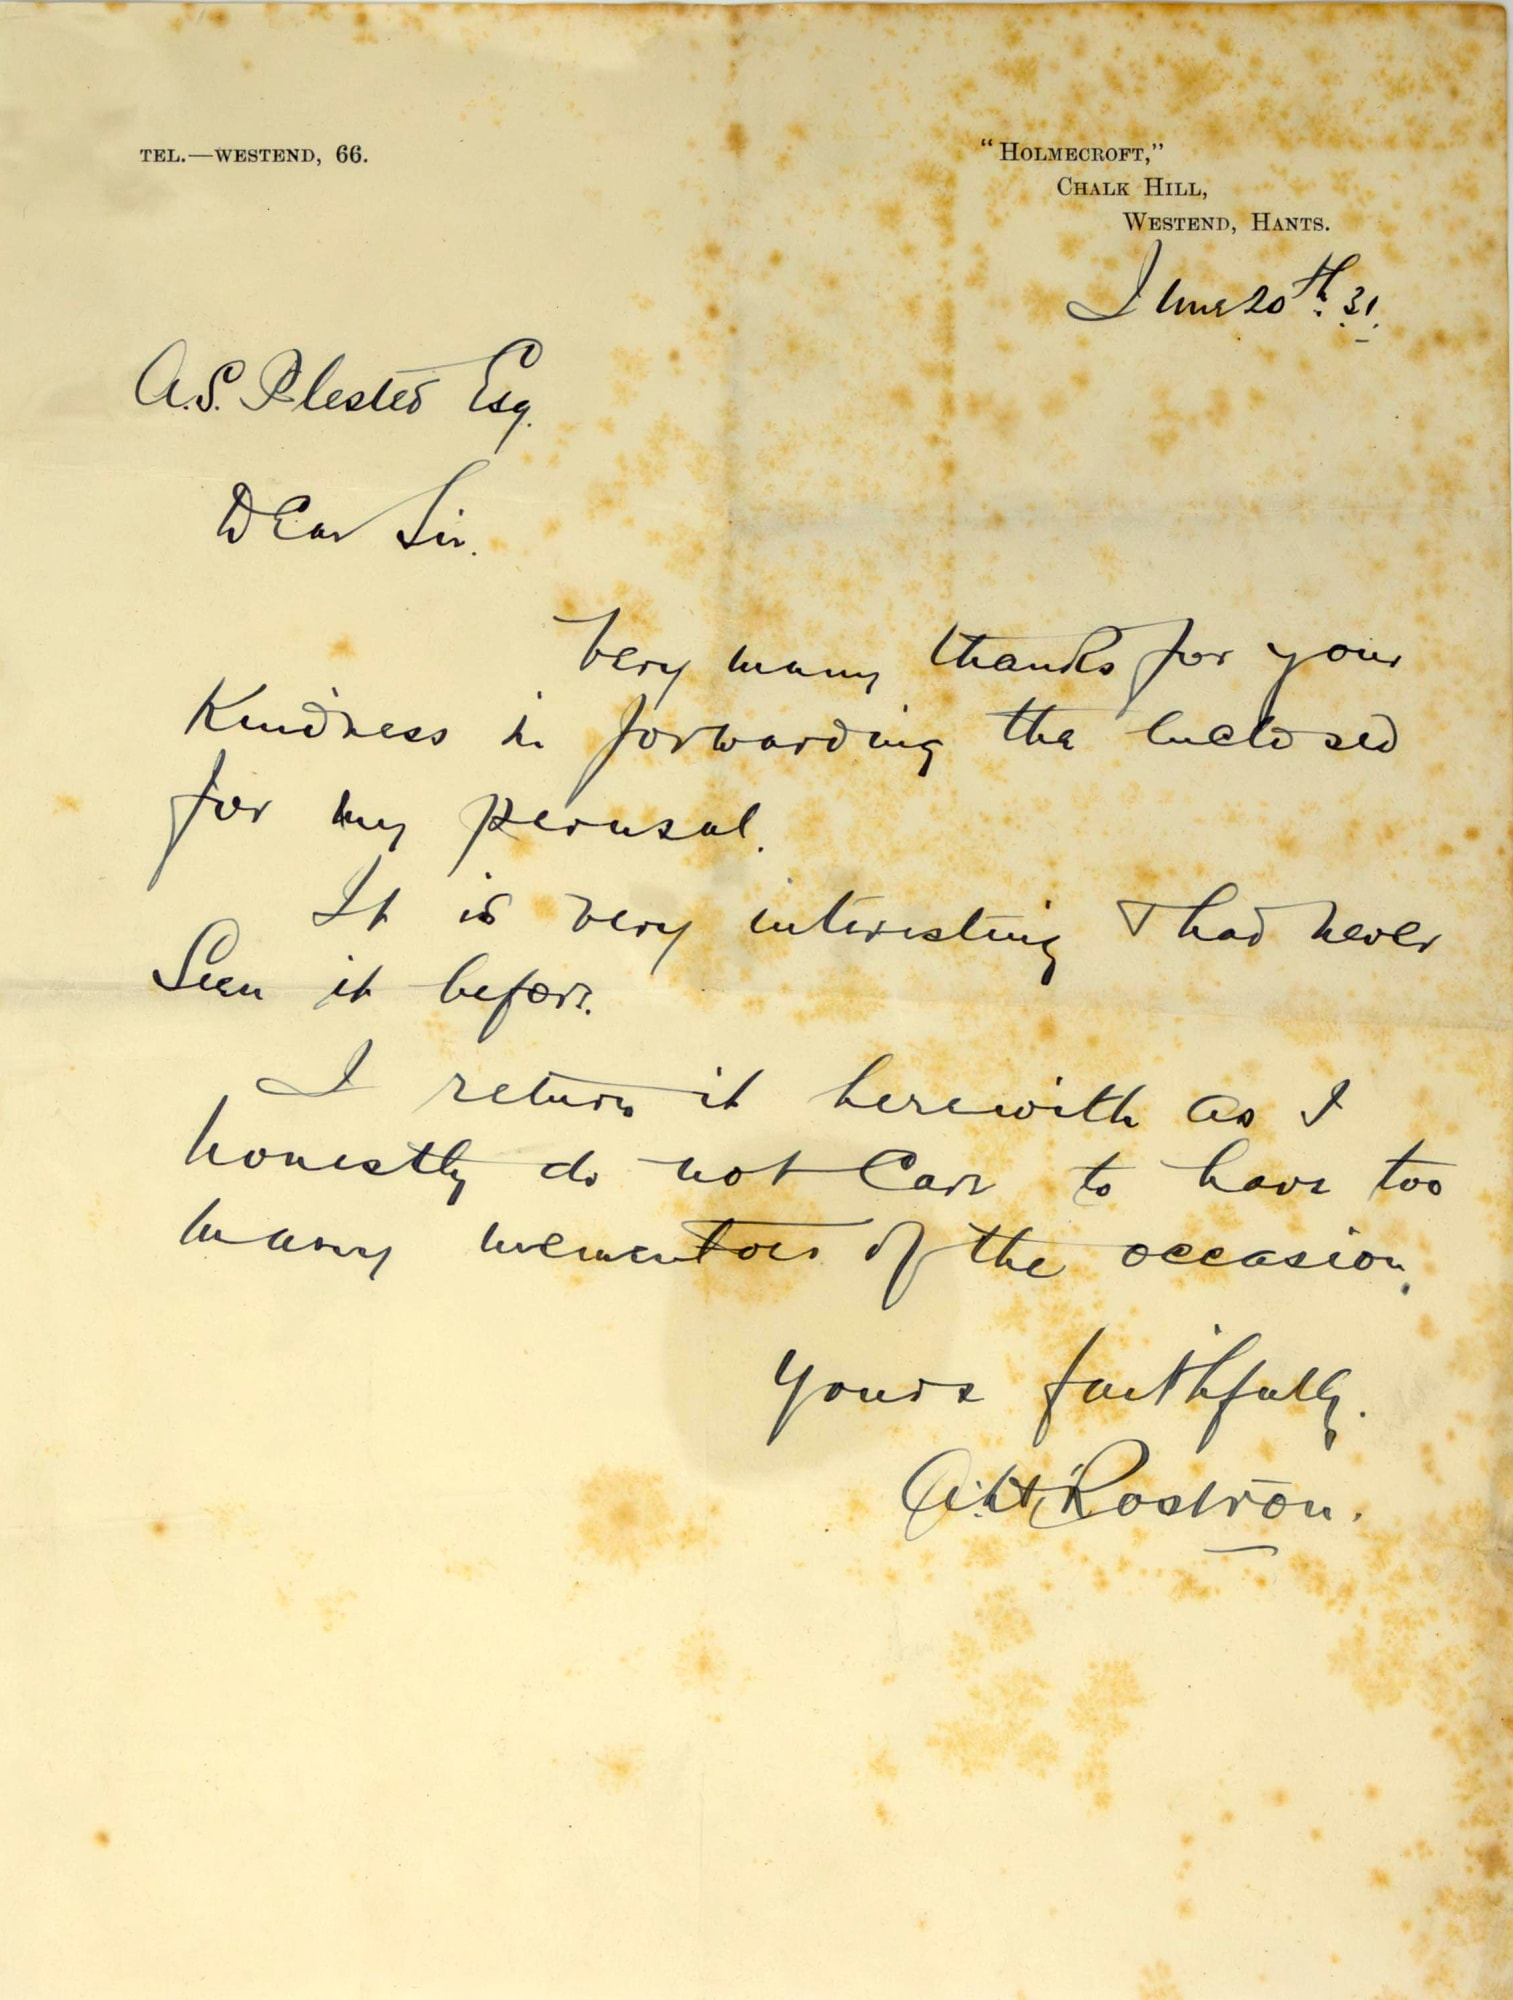 TEL.—WESTEND, 66.
"HOLMECROFT,"
CHALK HILL,
WESTEND, HANTS.
June 20th. 31.
A.S. Plested Esq.
Dear Sir.
Very many thanks for your
Kindness in forwarding the enclosed
for my perusal.
It is very interesting & had never
Seen it before.
I return it herewith as I
honestly do not Care to have too
many mementoes of the occasion.
Yours faithfully.
A.H. Rostron.